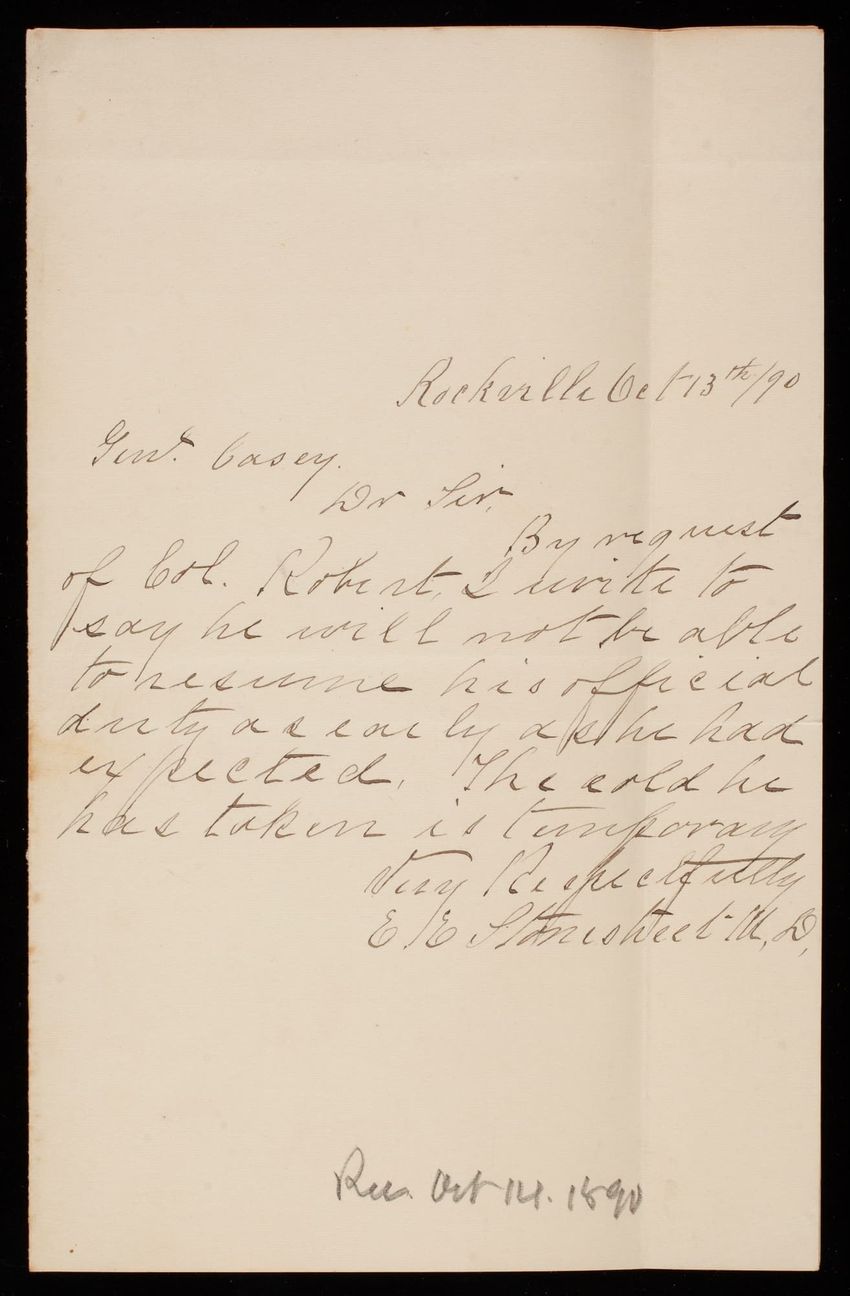 Rockville Oct 13th/90
Genl. Casey.
Dr Sir,
By request
of Col. Robert, I write to
say he will not be able
to resume his official
duty as early as he had
expected. The cold he
has taken is temporary
Very Respectfully
E E Stonestreet M, D,
Rec. Oct 14. 1890